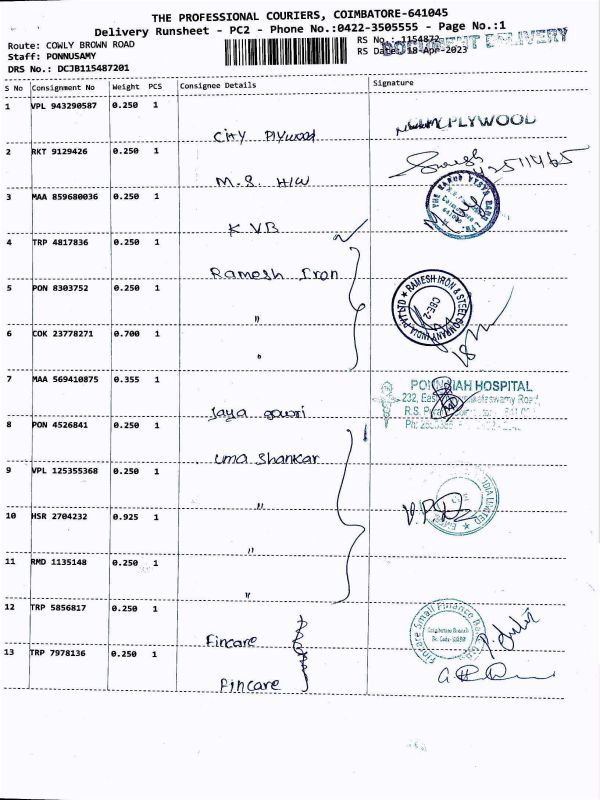 THE PROFESSIONAL COURIERS, COIMBATORE-641045
Delivery Runsheet - PC2 - Phone No.:0422-3505555 - Page No.:1
Route: COWLY BROWN ROAD
RS No.: 1154872
DOCUMENT DELIVERY
Staff: PONNUSAMY
RS Date: 18-Apr-2023
DRS No.: DCJB115487201
S No Consignment No Weight PCS Consignee Details Signature
1 VPL 943290587 0.250 1
City Plywood
CITY PLYWOOD
2 RKT 9129426 0.250 1
M.S. H/W
Suresh
3 MAA 859680036 0.250 1
K.V.B
THE KARUR VYSYA BANK LTD
4 TRP 4817836 0.250 1
Ramesh Iron
5 PON 8303752 0.250 1
"
RAMESH IRON & STEEL COMPANY INDIA PVT LTD
CBE-2
6 COK 23778271 0.700 1
"
7 MAA 569410875 0.355 1
Jaya gowri
HOSPITAL
232, East
R.S.
8 PON 4526841 0.250 1
Uma Shankar
9 VPL 125355368 0.250 1
"
INDIA LIMITED
10 HSR 2704232 0.925 1
"
11 RMD 1135148 0.250 1
"
12 TRP 5856817 0.250 1
Fincare
Fincare Small Finance Bank
Coimbatore Branch
13 TRP 7978136 0.250 1
Fincare